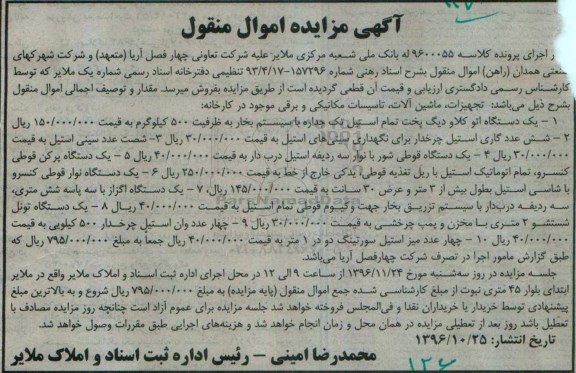 آگهی مزایده اموال منقول
در اجرای پرونده کلاسه ۹۶۰۰۰۵۵ له بانک ملی شعبه مرکزی ملایر علیه شرکت تعاونی چهار فصل آریا (متعهد) و شرکت شهرکهای
صنعتی همدان (راهن) اموال منقول بشرح اسناد رهنی شماره ۱۵۷۲۹۶-۹۳/۴/۱۷ تنظیمی دفترخانه اسناد رسمی شماره یک ملایر که توسط
کارشناس رسمی دادگستری ارزیابی و قیمت آن قطعی گردیده است از طریق مزایده بفروش میرسد. مقدار و توصیف اجمالی اموال منقول
بشرح ذیل می‌باشد: تجهیزات، ماشین آلات، تاسیسات مکانیکی و برقی موجود در کارخانه:
۱ - یک دستگاه اتو کلاو دیگ پخت تمام استیل یک جداره با سیستم بخار به ظرفیت ۵۰۰ کیلوگرم به قیمت ۱۵۰/۰۰۰/۰۰۰ ریال
۲ - شش عدد گاری استیل چرخدار برای نگهداری سینی‌های استیل به قیمت ۳۰/۰۰۰/۰۰۰ ریال ۳- شصت عدد سینی استیل به قیمت
۳۰/۰۰۰/۰۰۰ ریال ۴ - یک دستگاه قوطی شور با نوار سه ردیفه استیل درب دار به قیمت ۴۰/۰۰۰/۰۰۰ ریال ۵ - یک دستگاه پرکن قوطی
کنسرو، تمام اتوماتیک استیل با ریل تغذیه قوطی یدکی خارج از خط به قیمت ۲۵۰/۰۰۰/۰۰۰ ریال ۶ - یک دستگاه نوار قوطی کنسرو
با شاسی استیل بطول بیش از ۳ متر و عرض ۳۰ سانت به قیمت ۱۴۵/۰۰۰/۰۰۰ ریال، ۷ - یک دستگاه اگزاز با سه پاسه شش متری،
سه ردیفه درب‌دار با سیستم تزریق بخار جهت وکیوم قوطی تمام استیل به قیمت ۴۰/۰۰۰/۰۰۰ ریال ۸ - یک دستگاه تونل
شستشو ۲ متری با مخزن و پمپ چرخشی به قیمت ۳۰/۰۰۰/۰۰۰ ریال ۹ - چهار عدد وان استیل چرخدار ۵۰۰ کیلویی به قیمت
۴۰/۰۰۰/۰۰۰ ریال ۱۰ - چهار عدد میز استیل سورتینگ دو در ۱ متر به قیمت ۴۰/۰۰۰/۰۰۰ ریال جمعا به مبلغ ۷۹۵/۰۰۰/۰۰۰ ریال که
طبق گزارش مامور اجرا در تصرف شرکت چهارفصل آریا می‌باشد.
جلسه مزایده در روز سه‌شنبه مورخ ۱۳۹۶/۱۱/۲۴ از ساعت ۹ الی ۱۲ در محل اجرای اداره ثبت اسناد و املاک ملایر واقع در ملایر
ابتدای بلوار ۴۵ متری نبوت از مبلغ کارشناسی شده جمع اموال منقول (پایه مزایده) به مبلغ ۷۹۵/۰۰۰/۰۰۰ ریال شروع و به بالاترین مبلغ
پیشنهادی توسط خریدار یا خریداران نقدا و فی‌المجلس فروخته خواهد شد جلسه مزایده برای عموم آزاد است چنانچه روز مزایده مصادف با
تعطیل باشد روز بعد از تعطیلی مزایده در همان محل و زمان انجام خواهد شد و هزینه‌های اجرایی طبق مقررات وصول خواهد شد.
تاریخ انتشار: ۱۳۹۶/۱۰/۲۵
محمدرضا امینی - رئیس اداره ثبت اسناد و املاک ملایر
۱۲۶